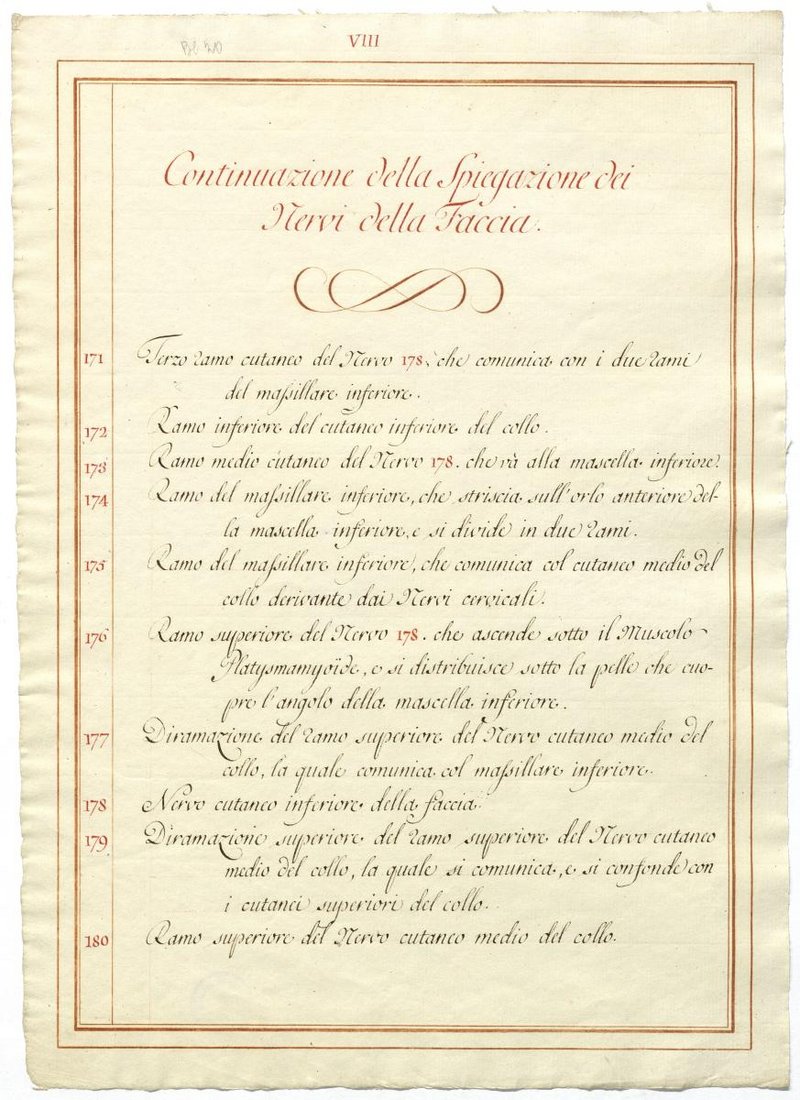 VIII
Continuazione della Spiegazione dei
Nervi della Faccia.
171 Terzo ramo cutaneo del Nervo 178, che comunica con i due rami
del massillare inferiore.
172 Ramo inferiore del cutaneo inferiore del collo.
173 Ramo medio cutaneo del Nervo 178. che và alla mascella inferiore.
174 Ramo del massillare inferiore, che striscia sull'orlo anteriore del-
la mascella inferiore, e si divide in due rami.
175 Ramo del massillare inferiore, che comunica col cutaneo medio del
collo derivante dai Nervi cervicali.
176 Ramo superiore del Nervo 178. che ascende sotto il Muscolo
Platysmamyoïde, e si distribuisce sotto la pelle che cuo-
pre l'angolo della mascella inferiore.
177 Diramazione del ramo superiore del Nervo cutaneo medio del
collo, la quale comunica col massillare inferiore.
178 Nervo cutaneo inferiore della faccia.
179 Diramazione superiore del ramo superiore del Nervo cutaneo
medio del collo, la quale si comunica, e si confonde con
i cutanei superiori del collo.
180 Ramo superiore del Nervo cutaneo medio del collo.